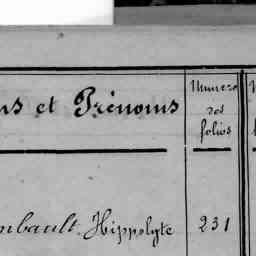 ns et Prénoms
Numéro
des
folios
mbault Hippolyte 231